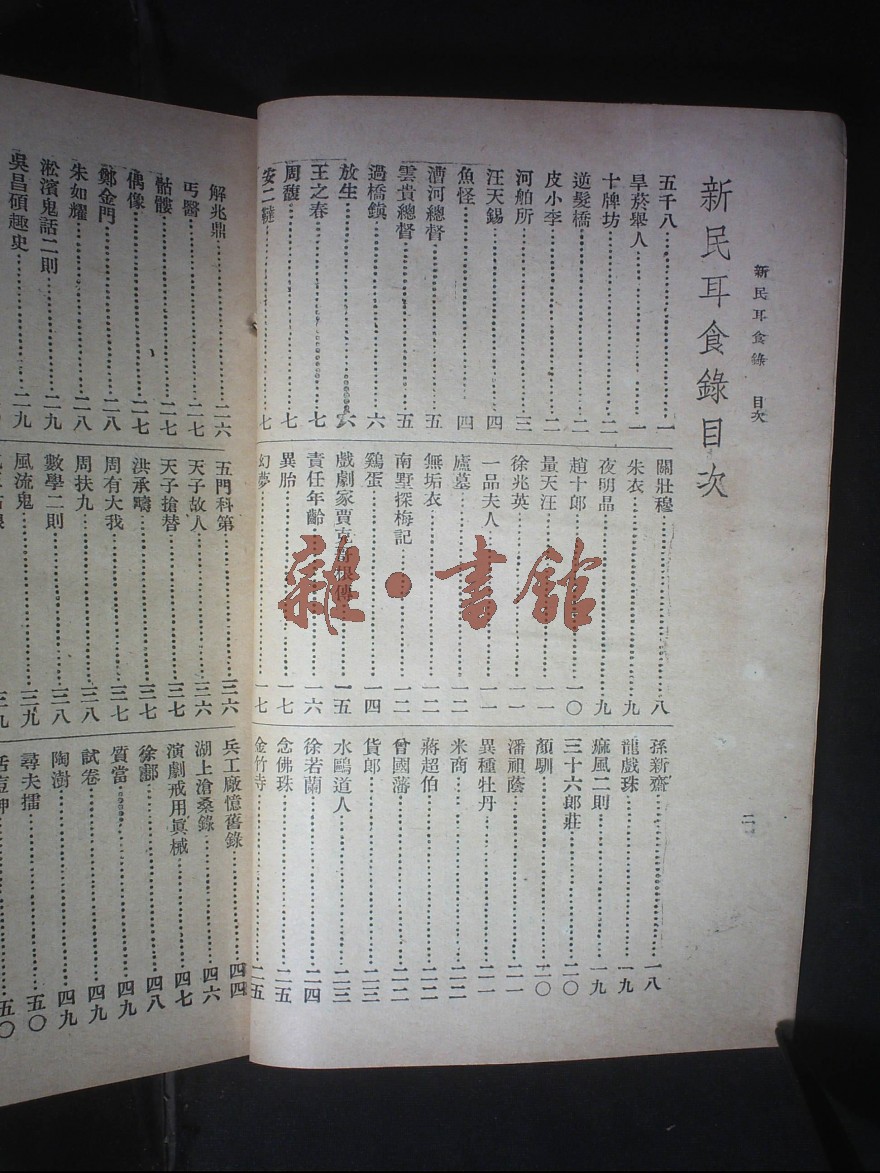 新民耳食錄 目次
二
新民耳食錄目次
五千八 一
旱菸舉人 一
十牌坊 二
逆髮橋 二
皮小李 二
河舶所 三
汪天錫 四
魚怪 四
漕河總督 五
雲貴總督 五
過橋鎮 六
放生 六
王之春 七
周馥 七
安二 七
關壯穆 八
朱衣 九
夜明品 九
趙十郎 一〇
量天汪 一一
徐兆英 一一
一品夫人 一一
廬墓 一二
無垢衣 一二
南墅探梅記 一二
鷄蛋 一四
戲劇家賈克哥根傳 一五
責任年齡 一六
異胎 一七
幻夢 一七
孫新齋 一八
龍戲珠 一九
痲風二則 一九
三十六郎莊 二〇
顏馴 二〇
潘祖蔭 二一
異種牡丹 二一
米商 二二
蔣超伯 二二
曾國藩 二二
貨郎 二三
水鷗道人 二三
徐若蘭 二四
念佛珠 二五
金竹寺 二五
解兆鼎 二六
丐醫 二七
骷髏 二七
偶像 二七
鄭金門 二八
朱如耀 二八
淞濱鬼話二則 二九
吳昌碩趣史 二九
五門科第 三六
天子故人 三六
天子搶替 三七
洪承疇 三七
周有大我 三七
周扶九 三八
數學二則 三八
風流鬼 三九
三九
兵工廠憶舊錄 四四
湖上滄桑錄 四六
演劇戒用眞械 四七
徐酈 四八
質當 四九
試卷 四九
陶澍 四九
尋夫擂 五〇
五〇
雜·書館